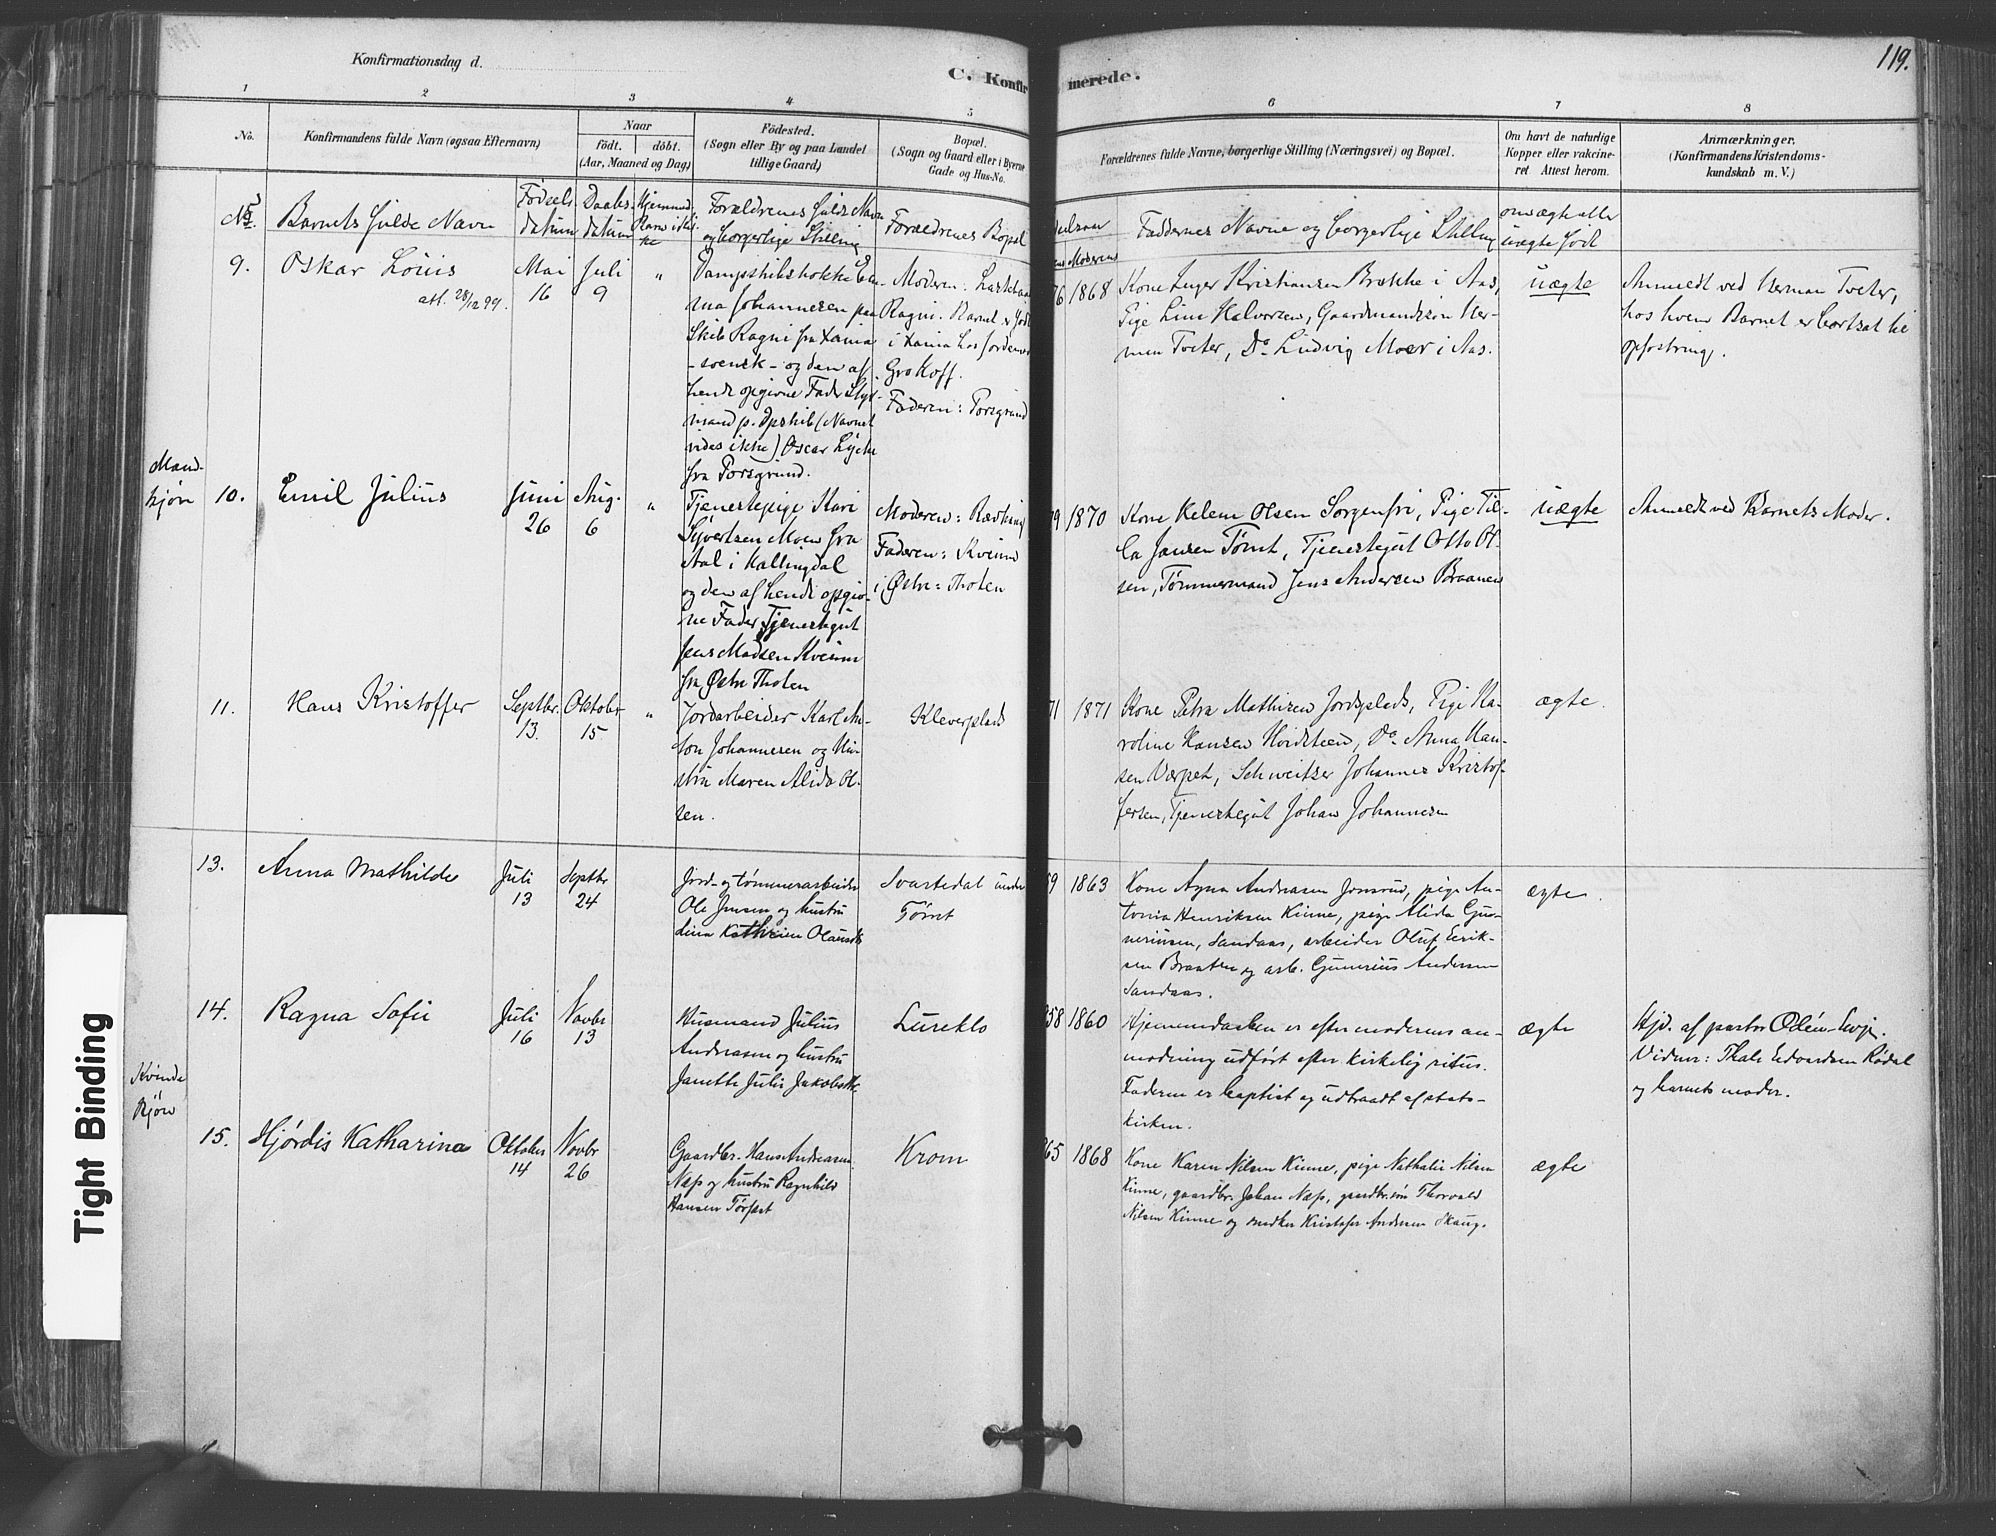 119.
Konfirmationsdag d.
C. Konfir
merede.
1
2
3
4
5
6
7
8
No.
Konfirmandens fulde Navn (ogsaa Efternavn)
Naar
født.
döbt.
(Aar, Maaned og Dag)
Födested.
(Sogn eller By og paa Landet
tillige Gaard)
Bopæl.
(Sogn og Gaard eller i Byerne
Gade og Hus-No.
Forældrenes fulde Navne, borgerlige Stilling (Næringsvei) og Bopæl.
Om havt de naturlige
Kopper eller vakcine-
ret Attest herom.
Anmærkninger.
(Konfirmandens Kristendoms-
kundskab m. V.)
Barnets fulde Navn
Fødsels
datum
Daabs-
datum
Forældrenes fulde Navn
og borgerlige Stilling
Forældrenes Bopæl
Moderens
Faddernes Navne og borgerlige Stilling
om ægte eller
uægte født
9.
Oskar Louis
att. 28/12 99.
Mai
16
Juli
9
"
Dampskibskokke Em-
ma Johannesen paa
Skib Ragni fra Xania
- svensk - og den af
hende opgivne Fader Styr-
mand p. Dpskib (Navnet
vides ikke) Oscar Lyche
fra Porsgrund.
Moderen:
Ragni. Barnet er født
i Xania hos Jordemor
Grokoff.
Faderen: Porsgrund
76
1868
Kone Inger Kristiansen Brække i Aas,
Pige Lina Halvorsen, Gaardmandssøn Her-
man Tveter, Do Ludvig Moer i Aas.
uægte
Anmeldt ved Herman Tveter,
hos hvem Barnet er bortsat til
opfostring.
Mand-
kjøn
10.
Emil Julius
Juni
26
Aug.
6
"
Tjenestepige Kari
Syvertsen Moen fra
Aal i Hallingdal
og den af hende opgiv-
ne Fader, Tjenestegut
Jens Madsen Kvem
fra Østre Thoten
Moderen:
Faderen:
i Østre Thoten
79
1870
Kone Helene Olsen Sorgenfri, Pige Til-
la Jansen Tømt, Tjenestegut Otto Ol-
sen, Tømmermand Jens Andersen Braanen
uægte
Anmeldt ved Barnets Moder.
11.
Hans Kristoffer
Septbr.
13.
Oktober
15
"
Jordarbeider Karl An-
ton Johannesen og Hu-
stru Maren Alida Ol-
sen.
Kleverplads
71
1871
Kone Petra Mathisen Jordsplads, Pige Ka-
roline Hansen Hvidsteen, Do Anna Han-
sen Værpet, Schweitser Johannes Kristof-
fersen, Tjenestegut Johan Johannesen
ægte.
13.
Anna Mathilde
Juli
13
Septbr
24
Jord- og tømmerarbeider
Ole Jensen og hustru
Lina Kathrine Olausdtr
Svartedal under
Tømt
69
1863
Kone Agna Andreasen Jonsrud, pige An-
tonia Henriksen Kinne, pige Alida Gun-
neriusen, Sandaas, arbeider Oluf Eerik-
sen Braaten og arb. Gunerius Andersen
Sandaas.
ægte.
14.
Ragna Sofie
Juli
16
Novbr
13
Husmand Julius
Andreasen og hustru
Janette Julie Jakobsdtr.
Lureklo
858
1860
Hjemmedaaben er efter moderens an-
modning udført efter kirkelig ritus.
Faderen er baptist og udtraadt af stats-
kirken.
ægte
Hjd. af pastor
Vidner: Thale Edvardsen Rødal
og barnets moder.
Kvinde
kjøn
15.
Hjørdis Katharina
Oktober
14
Novbr
26
Gaardbr. Hans Andreasen
Næs og hustru Ragnhild
Hansen Tørfæst
Krom
865
1868
Kone Karen Nilsen Kinne, pige Nathalie Nilsen
Kinne, gaardbr. Johan Næs, gaardbr.søn Thorvald
Nilsen Kinne og snedker Kristofer Andersen Skaug.
ægte
Tight Binding